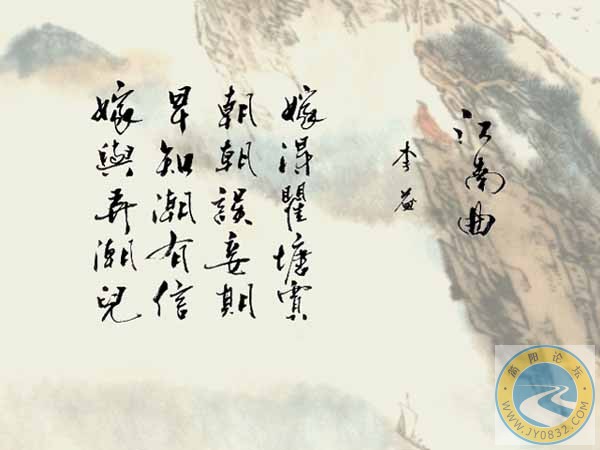 江南曲
李益
嫁得瞿塘賈
朝朝誤妾期
早知潮有信
嫁與弄潮兒
简阳论坛
WWW.JY0832.COM